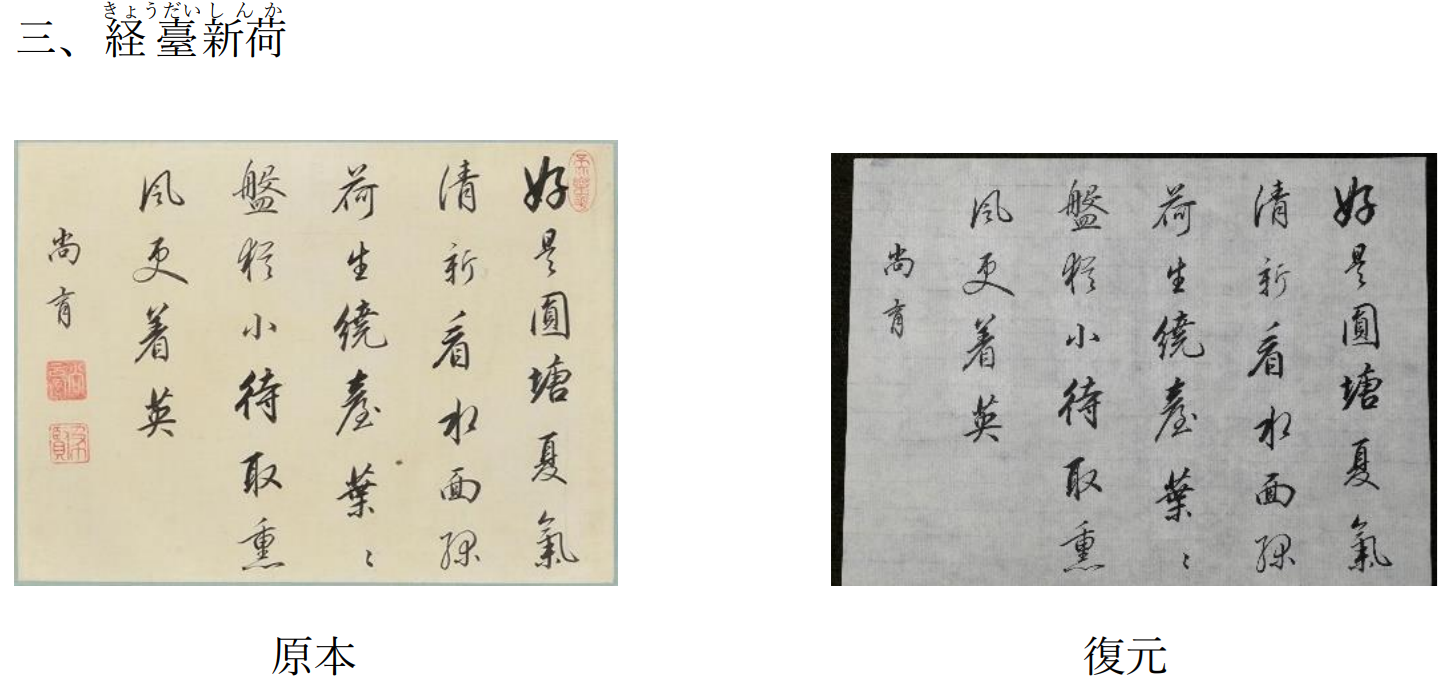 三、経臺新荷
きょうだいしんか
好是圓塘夏氣
清新看水面緑
荷生繞臺葉〻
盤猶小待取熏
風更着英
尚育
原本
好是圓塘夏氣
清新看水面緑
荷生繞臺葉〻
盤猶小待取熏
風更着英
尚育
復元